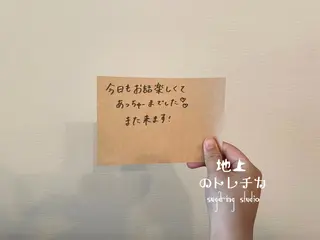 今日もお話楽しくて
あっちゅーまでした
また来ます!
地上
のトレチカ